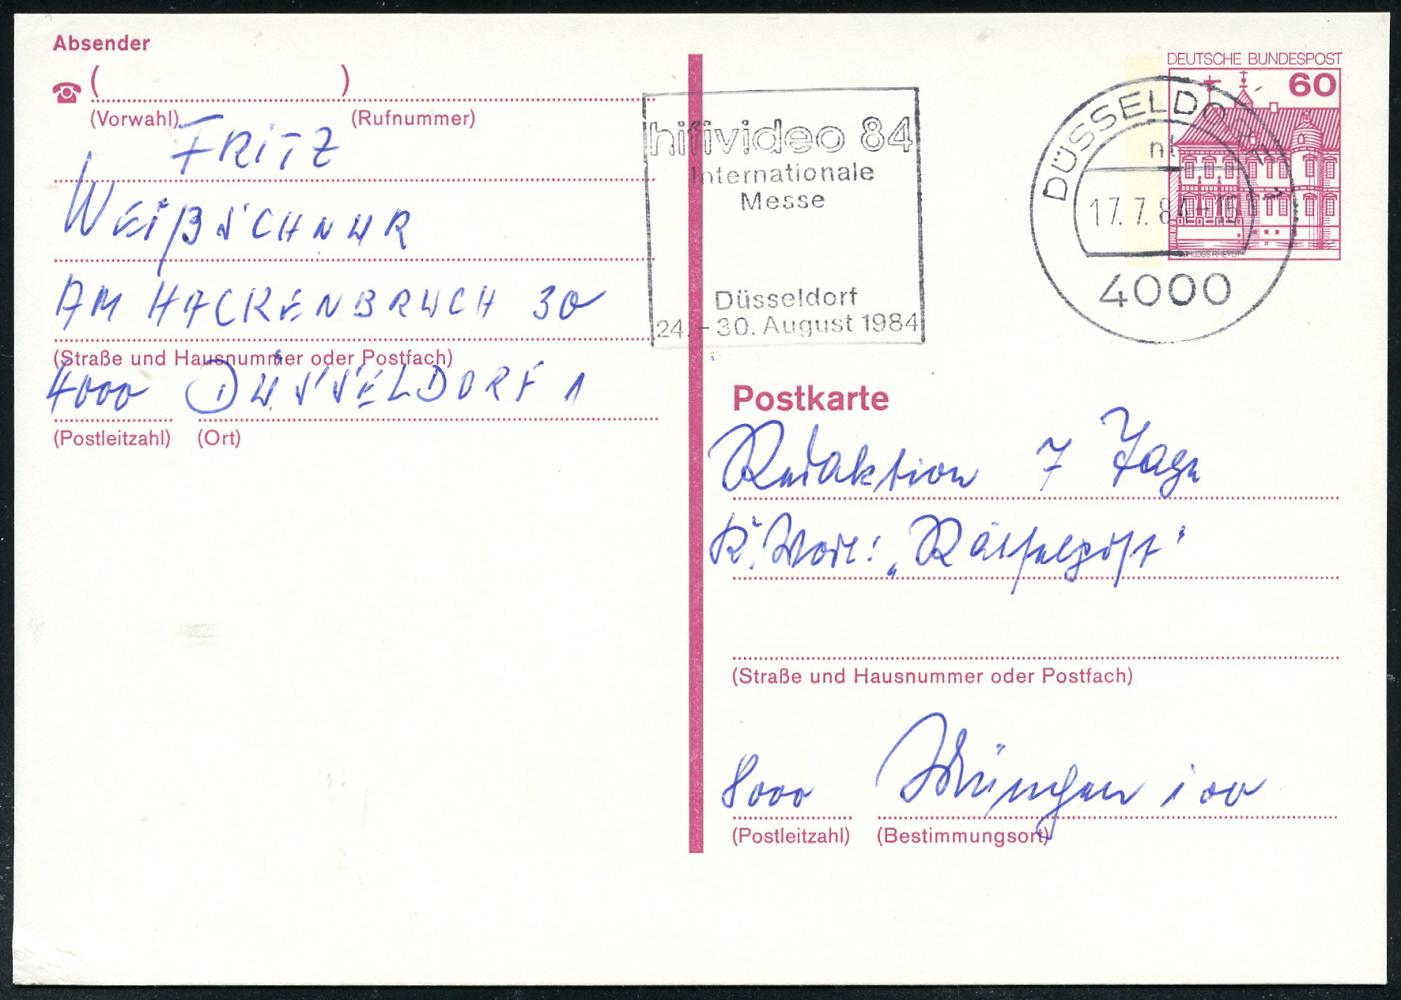 Absender
(Vorwahl) (Rufnummer)
FRITZ
WEIßSCHNUR
AM HACKENBRUCH 30
(Straße und Hausnummer oder Postfach)
4000 DÜSSELDORF 1
(Postleitzahl) (Ort)
hifivideo 84
Internationale
Messe
Düsseldorf
24.-30. August 1984
DEUTSCHE BUNDESPOST
60
DÜSSELDORF 1
17.7.84-16
4000
Postkarte
Redaktion 7 Tage
K. Wort: „Rätselpost"
(Straße und Hausnummer oder Postfach)
8000 München 100
(Postleitzahl) (Bestimmungsort)